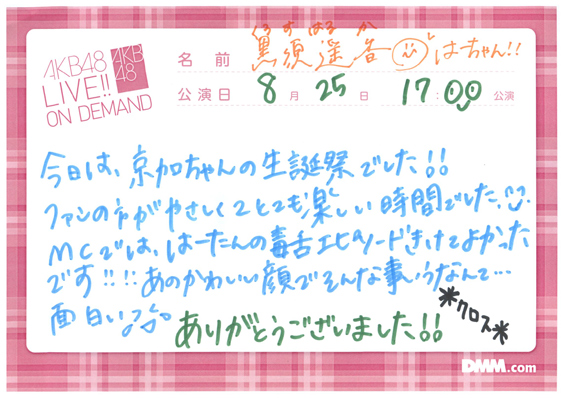 AKB48
LIVE!!
ON DEMAND
AKB
48
くろ す はる か
名前 黒須遥香 はーちゃん!!
公演日 8月25日 17:00公演
今日は、京加ちゃんの生誕祭でした!!
ファンの方がやさしくてとても楽しい時間でした。
MCでは、はーたんの毒舌エピソードきけてよかった
です!!!あのかわいい顔でそんな事いうなんて…
面白い
ありがとうございました!!
*クロス*
DMM.com